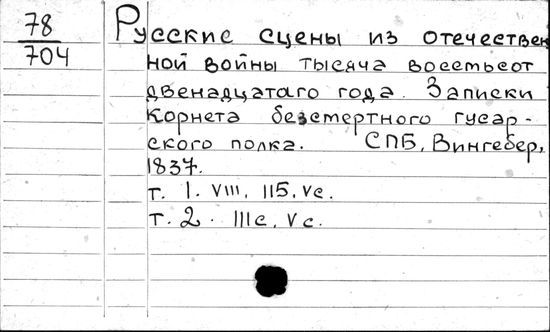 78
704
Русские сцены из отечествен
ной войны тысяча восемьсот
двенадцатаго года. Записки
корнета безсмертного гусар-
ского полка. СПБ, Вингебер,
1837.
т. 1. VIII, 115, Vс.
т. 2. IIIс, Vс.